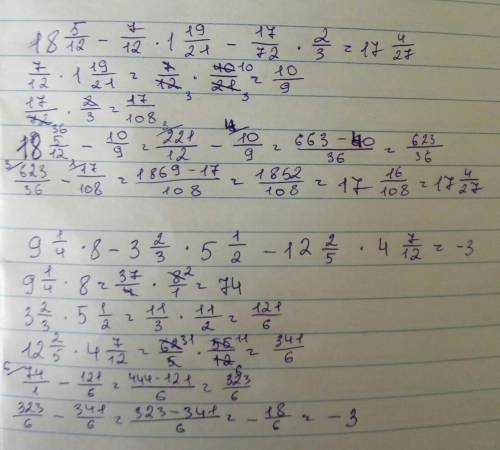 18 5/12 - 7/12 · 1 19/21 - 17/72 · 2/3 = 17 4/27
7/12 · 1 19/21 = 7/12 · 40/21 = 10/9
17/72 · 2/3 = 17/108
18 5/12 - 10/9 = 221/12 - 10/9 = 663 - 40/36 = 623/36
623/36 - 17/108 = 1869 - 17/108 = 1852/108 = 17 16/108 = 17 4/27
9 1/4 · 8 - 3 2/3 · 5 1/2 - 12 2/5 · 4 7/12 = -3
9 1/4 · 8 = 37/4 · 8/1 = 74
3 2/3 · 5 1/2 = 11/3 · 11/2 = 121/6
12 2/5 · 4 7/12 = 62/5 · 55/12 = 341/6
74/1 - 121/6 = 444 - 121/6 = 323/6
323/6 - 341/6 = 323 - 341/6 = - 18/6 = - 3